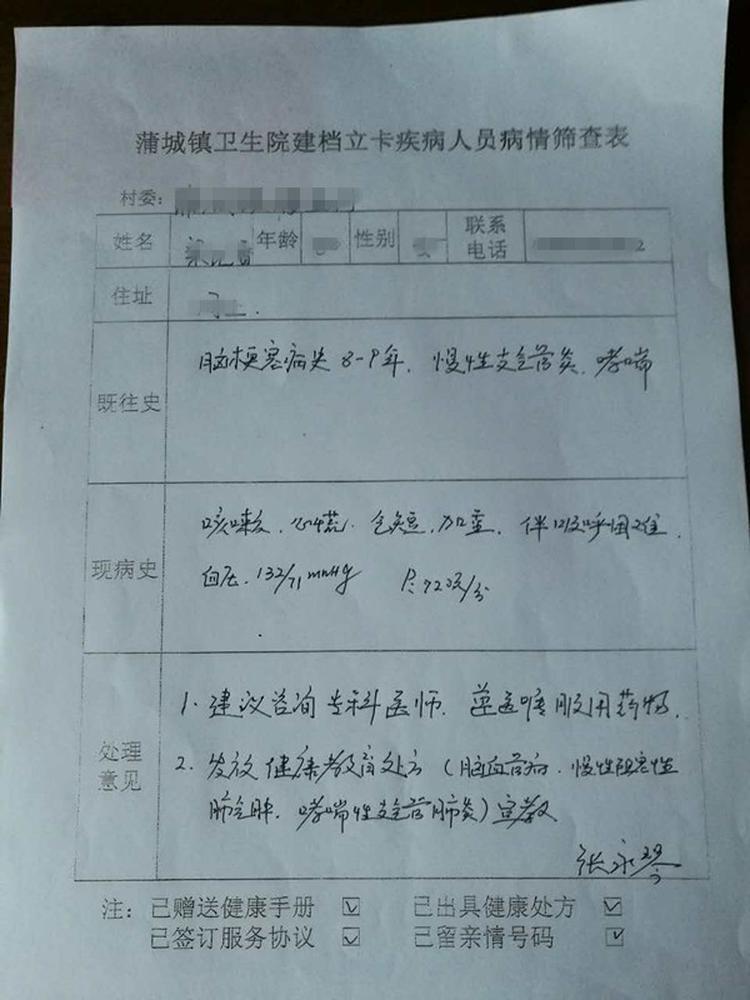 蒲城镇卫生院建档立卡疾病人员病情筛查表
村委:
姓名 年龄 性别 联系电话 2
住址
既往史 脑梗塞病史 8-9年. 慢性支气管炎. 哮喘
现病史 咳嗽, 心慌. 气短, 加重, 伴呼吸困难.
血压. 132/71 mmHg P: 72次/分
处理意见 1. 建议咨询专科医师. 遵医嘱服用药物.
2. 发放健康教育处方 (脑血管病. 慢性阻塞性
肺气肿. 哮喘性支气管肺炎) 宣教
张永琴
注: 已赠送健康手册 ☑ 已出具健康处方 ☑
已签订服务协议 ☑ 已留亲情号码 ☑